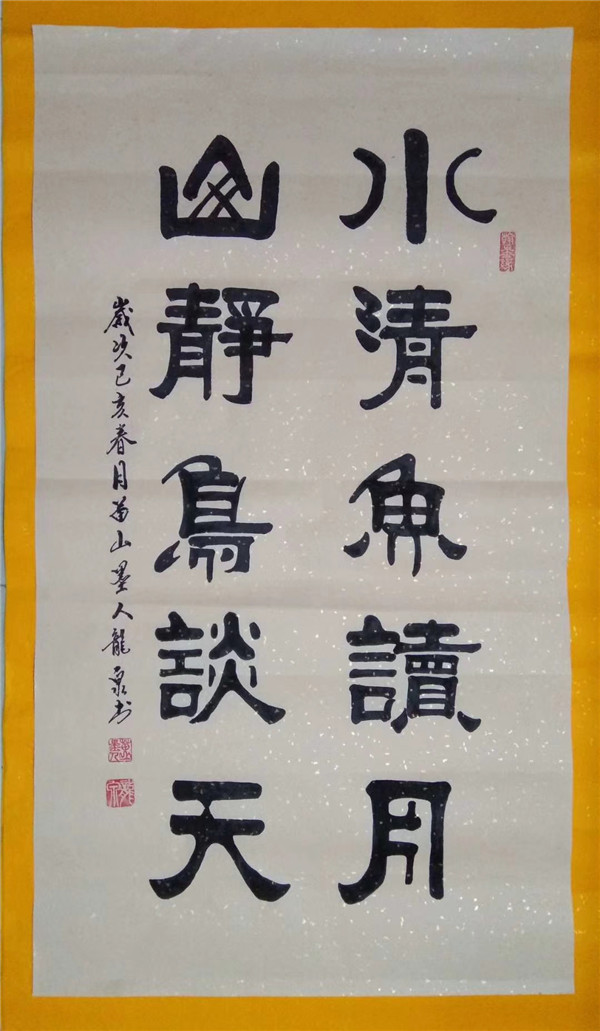 水清魚讀月
山靜鳥談天
歲次己亥春月苗山墨人龍泉书